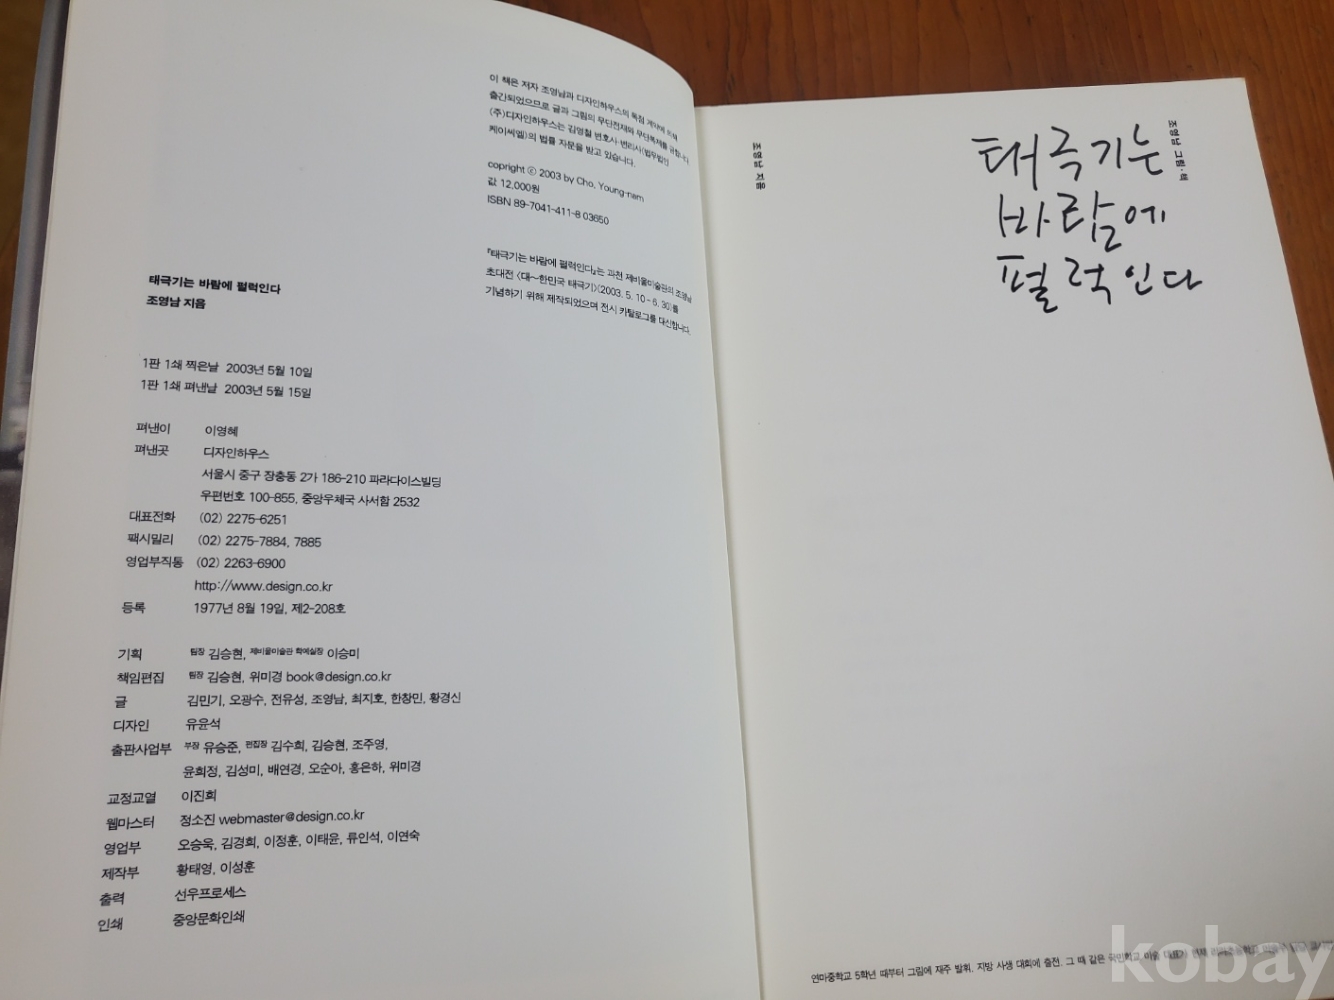 이 책은 저자 조영남과 디자인하우스의 독점 계약에 의해
출간되었으므로 글과 그림의 무단전재와 무단복제를 금합니다
(주)디자인하우스는 김영철 변호사·변리사(법무법인
케이씨엘)의 법률 자문을 받고 있습니다.
copright ⓒ 2003 by Cho, Young-nam
값 12,000원
ISBN 89-7041-411-8 03650
『태극기는 바람에 펄럭인다』는 과천 제비울미술관의 조영남
초대전 〈대~한민국 태극기〉(2003. 5. 10 - 6. 30)를
기념하기 위해 제작되었으며 전시 카탈로그를 대신합니다.
태극기는 바람에 펄럭인다
조영남 지음
1판 1쇄 찍은날 2003년 5월 10일
1판 1쇄 펴낸날 2003년 5월 15일
펴낸이 이영혜
펴낸곳 디자인하우스
서울시 중구 장충동 2가 186-210 파라다이스빌딩
우편번호 100-855, 중앙우체국 사서함 2532
대표전화 (02) 2275-6251
팩시밀리 (02) 2275-7884, 7885
영업부직통 (02) 2263-6900
http://www.design.co.kr
등록 1977년 8월 19일, 제2-208호
기획 팀장 김승현, 제비울미술관 학예실장 이승미
책임편집 팀장 김승현, 위미경 book@design.co.kr
글 김민기, 오광수, 전유성, 조영남, 최지호, 한창민, 황경신
디자인 유윤석
출판사업부 부장 유승준, 편집장 김수희, 김승현, 조주영,
윤희정, 김성미, 배연경, 오순아, 홍은하, 위미경
교정교열 이진희
웹마스터 정소진 webmaster@design.co.kr
영업부 오승욱, 김경희, 이정훈, 이태윤, 류인석, 이연숙
제작부 황태영, 이성훈
출력 선우프로세스
인쇄 중앙문화인쇄
조영남 지음
조영남 그림·책
태극기는
바람에
펄럭인다
연마중학교 5학년 때부터 그림에 재주 발휘. 지방 사생 대회에 출전. 그 때 같은 국민학교 미술 대표가
kobay